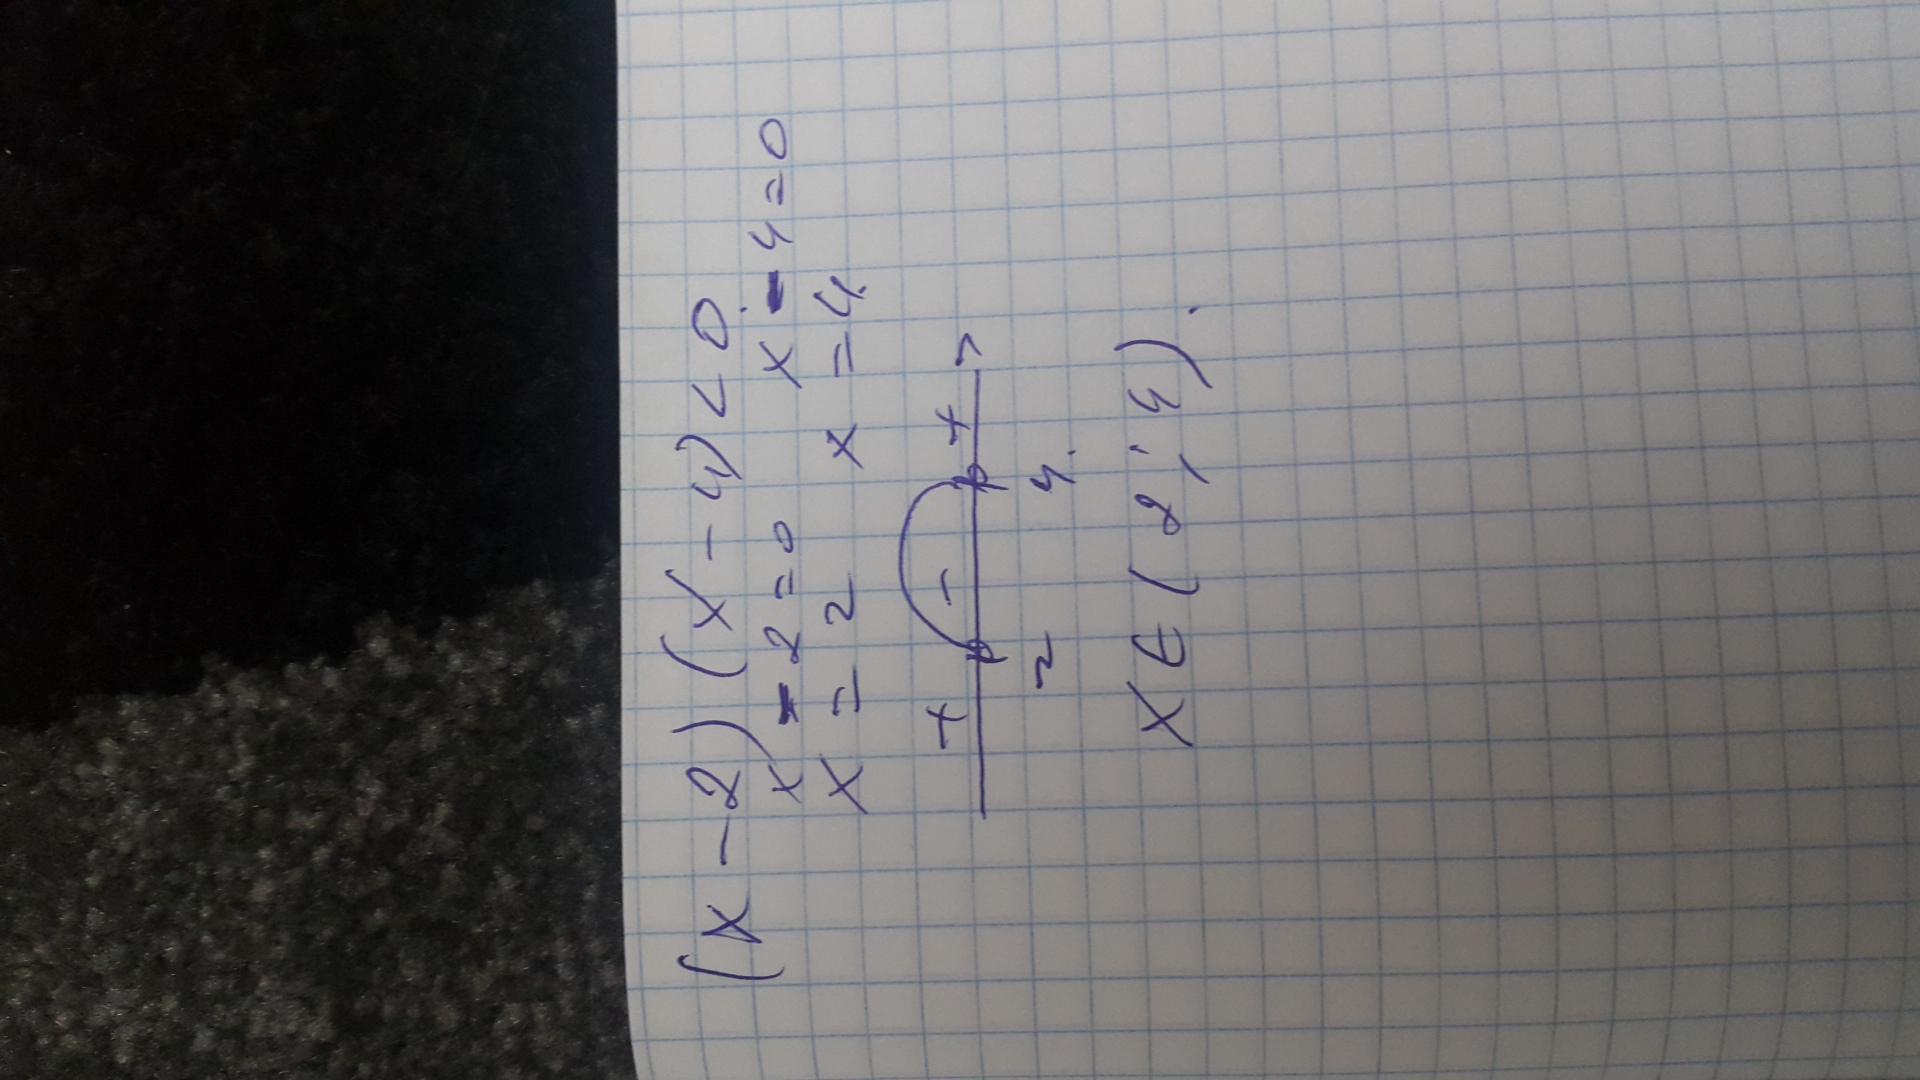 (x-2)(x-4)<0
x-2=0 x-4=0
x=2 x=4
+ - +
2 4
x∈(2;4).